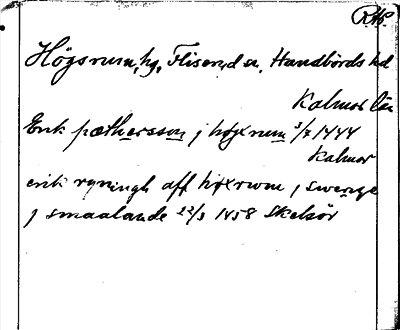 RAp.
Högsrum, hg, Fliseryd sn, Handbörds hd
Kalmar län
Erik pæthersson j høxrum 3/7 1444
Kalmar
erik ryningh aff høxrwm j swerige
j smaalande 22/3 1458 Skelsör